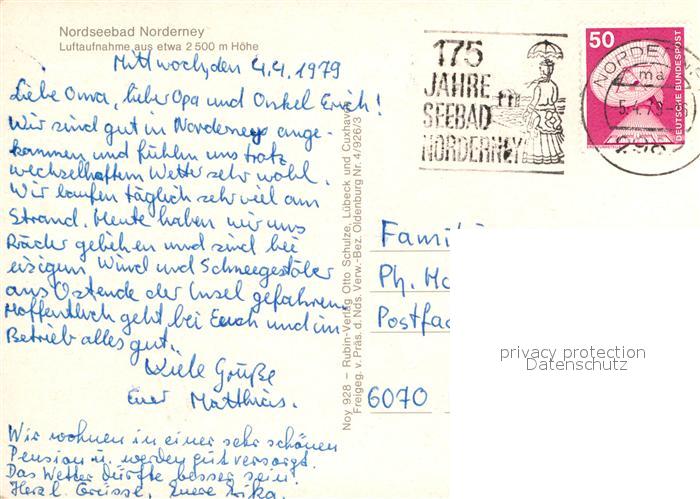 Nordseebad Norderney
Luftaufnahme aus etwa 2500 m Höhe
Mittwoch, den 4.4.1979
Liebe Oma, lieber Opa und Onkel Erich!
Wir sind gut in Norderney ange-
kommen und fühlen uns trotz
wechselhaftem Wetter sehr wohl.
Wir laufen täglich sehr viel am
Strand. Heute haben wir uns
Räder geliehen und sind bei
eisigem Wind und Schneegestöber
ans Ostende der Insel gefahren.
Hoffentlich geht bei Euch und im
Betrieb alles gut.
Viele Grüße
Euer Matthias.
Wir wohnen in einer sehr schönen
Pension u. werden gut versorgt.
Das Wetter dürfte besser sein!
Herzl. Grüsse, Euere Erika.
Noy 928 – Rubin-Verlag Otto Schulze, Lübeck und Cuxhaven
Freigeg. v. Präs. d. Nds. Verw.-Bez. Oldenburg Nr. 4/926/3
175
JAHRE
SEEBAD
NORDERNEY
50
DEUTSCHE BUNDESPOST
NORDERNEY
ma
Famil
Ph. Mc
Postfac
6070
privacy protection
Datenschutz